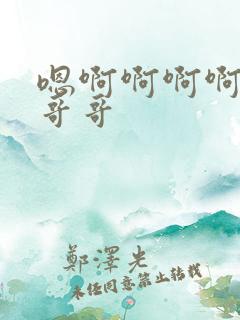 嗯啊啊啊啊
哥哥
鄭澤光
未经同意禁止转载